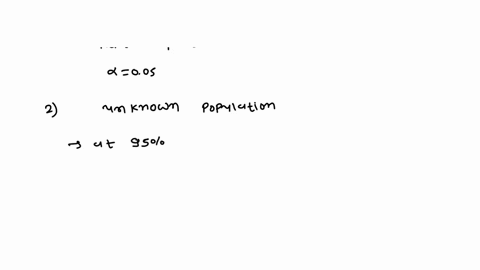 α=0.05
2) unknown population
→ at 95%